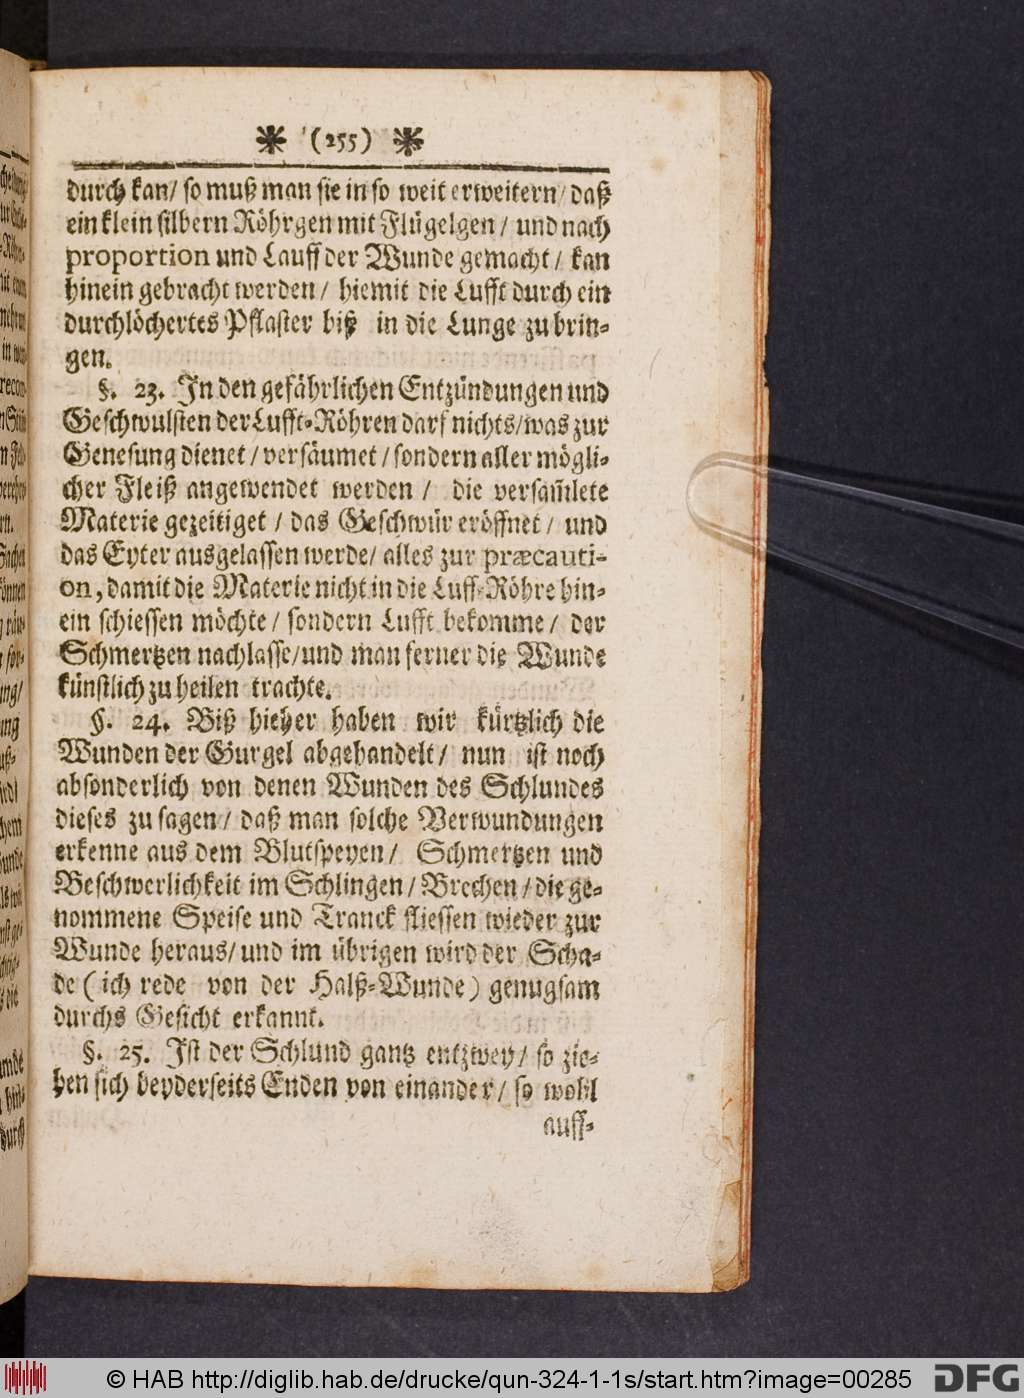 (255)
durch kan/ so muß man sie in so weit erweitern/ daß
ein klein silbern Röhrgen mit Flügelgen/ und nach
proportion und Lauff der Wunde gemacht/ kan
hinein gebracht werden/ hiemit die Lufft durch ein
durchlöchertes Pflaster biß in die Lunge zu brin-
gen.
§. 23. In den gefährlichen Entzündungen und
Geschwulsten der Lufft-Röhren darf nichts/ was zur
Genesung dienet/ versäumet/ sondern aller mögli-
cher Fleiß angewendet werden/ die versam̃lete
Materie gezeitiget/ das Geschwür eröffnet/ und
das Eyter ausgelassen werde/ alles zur præcauti-
on, damit die Materie nicht in die Luff-Röhre hin-
ein schiessen möchte/ sondern Lufft bekomme/ der
Schmertzen nachlasse/ und man ferner die Wunde
künstlich zu heilen trachte.
§. 24. Biß hieher haben wir kürtzlich die
Wunden der Gurgel abgehandelt/ nun ist noch
absonderlich von denen Wunden des Schlundes
dieses zu sagen/ daß man solche Verwundungen
erkenne aus dem Blutspeyen/ Schmertzen und
Beschwerlichkeit im Schlingen/ Brechen/ die ge-
nommene Speise und Tranck fliessen wieder zur
Wunde heraus/ und im übrigen wird der Scha-
de (ich rede von der Halß-Wunde) genugsam
durchs Gesicht erkannt.
§. 25. Ist der Schlund gantz entzwey/ so zie-
hen sich beyderseits Enden von einander/ so wohl
auff-
© HAB http://diglib.hab.de/drucke/qun-324-1-1s/start.htm?image=00285
DFG